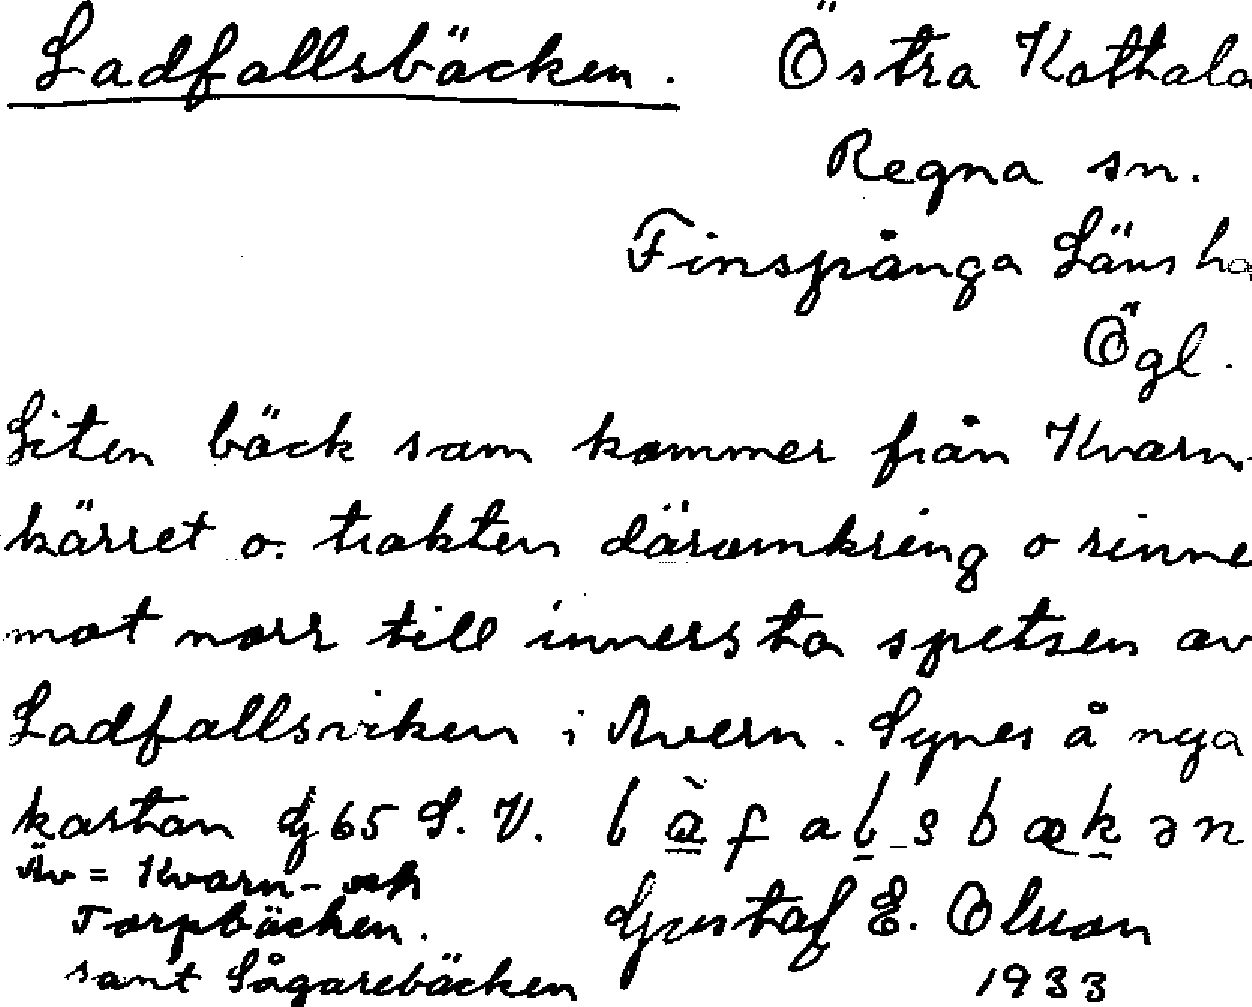 Ladfallsbäcken. Östra Kathala
Regna sn.
Finspånga Läns ha
Ögl.
Liten bäck som kommer från Kvarn-
kärret o. trakten däromkring o rinne
mot norr till innersta spetsen av
Ladfallsviken i Avern. Synes å nya
kartan G 65 S. V. l à f a l s b æ k ə n
Äv = Kvarn- och
Torpbäcken.
samt Sågarebäcken
Gustaf E. Olson
1933